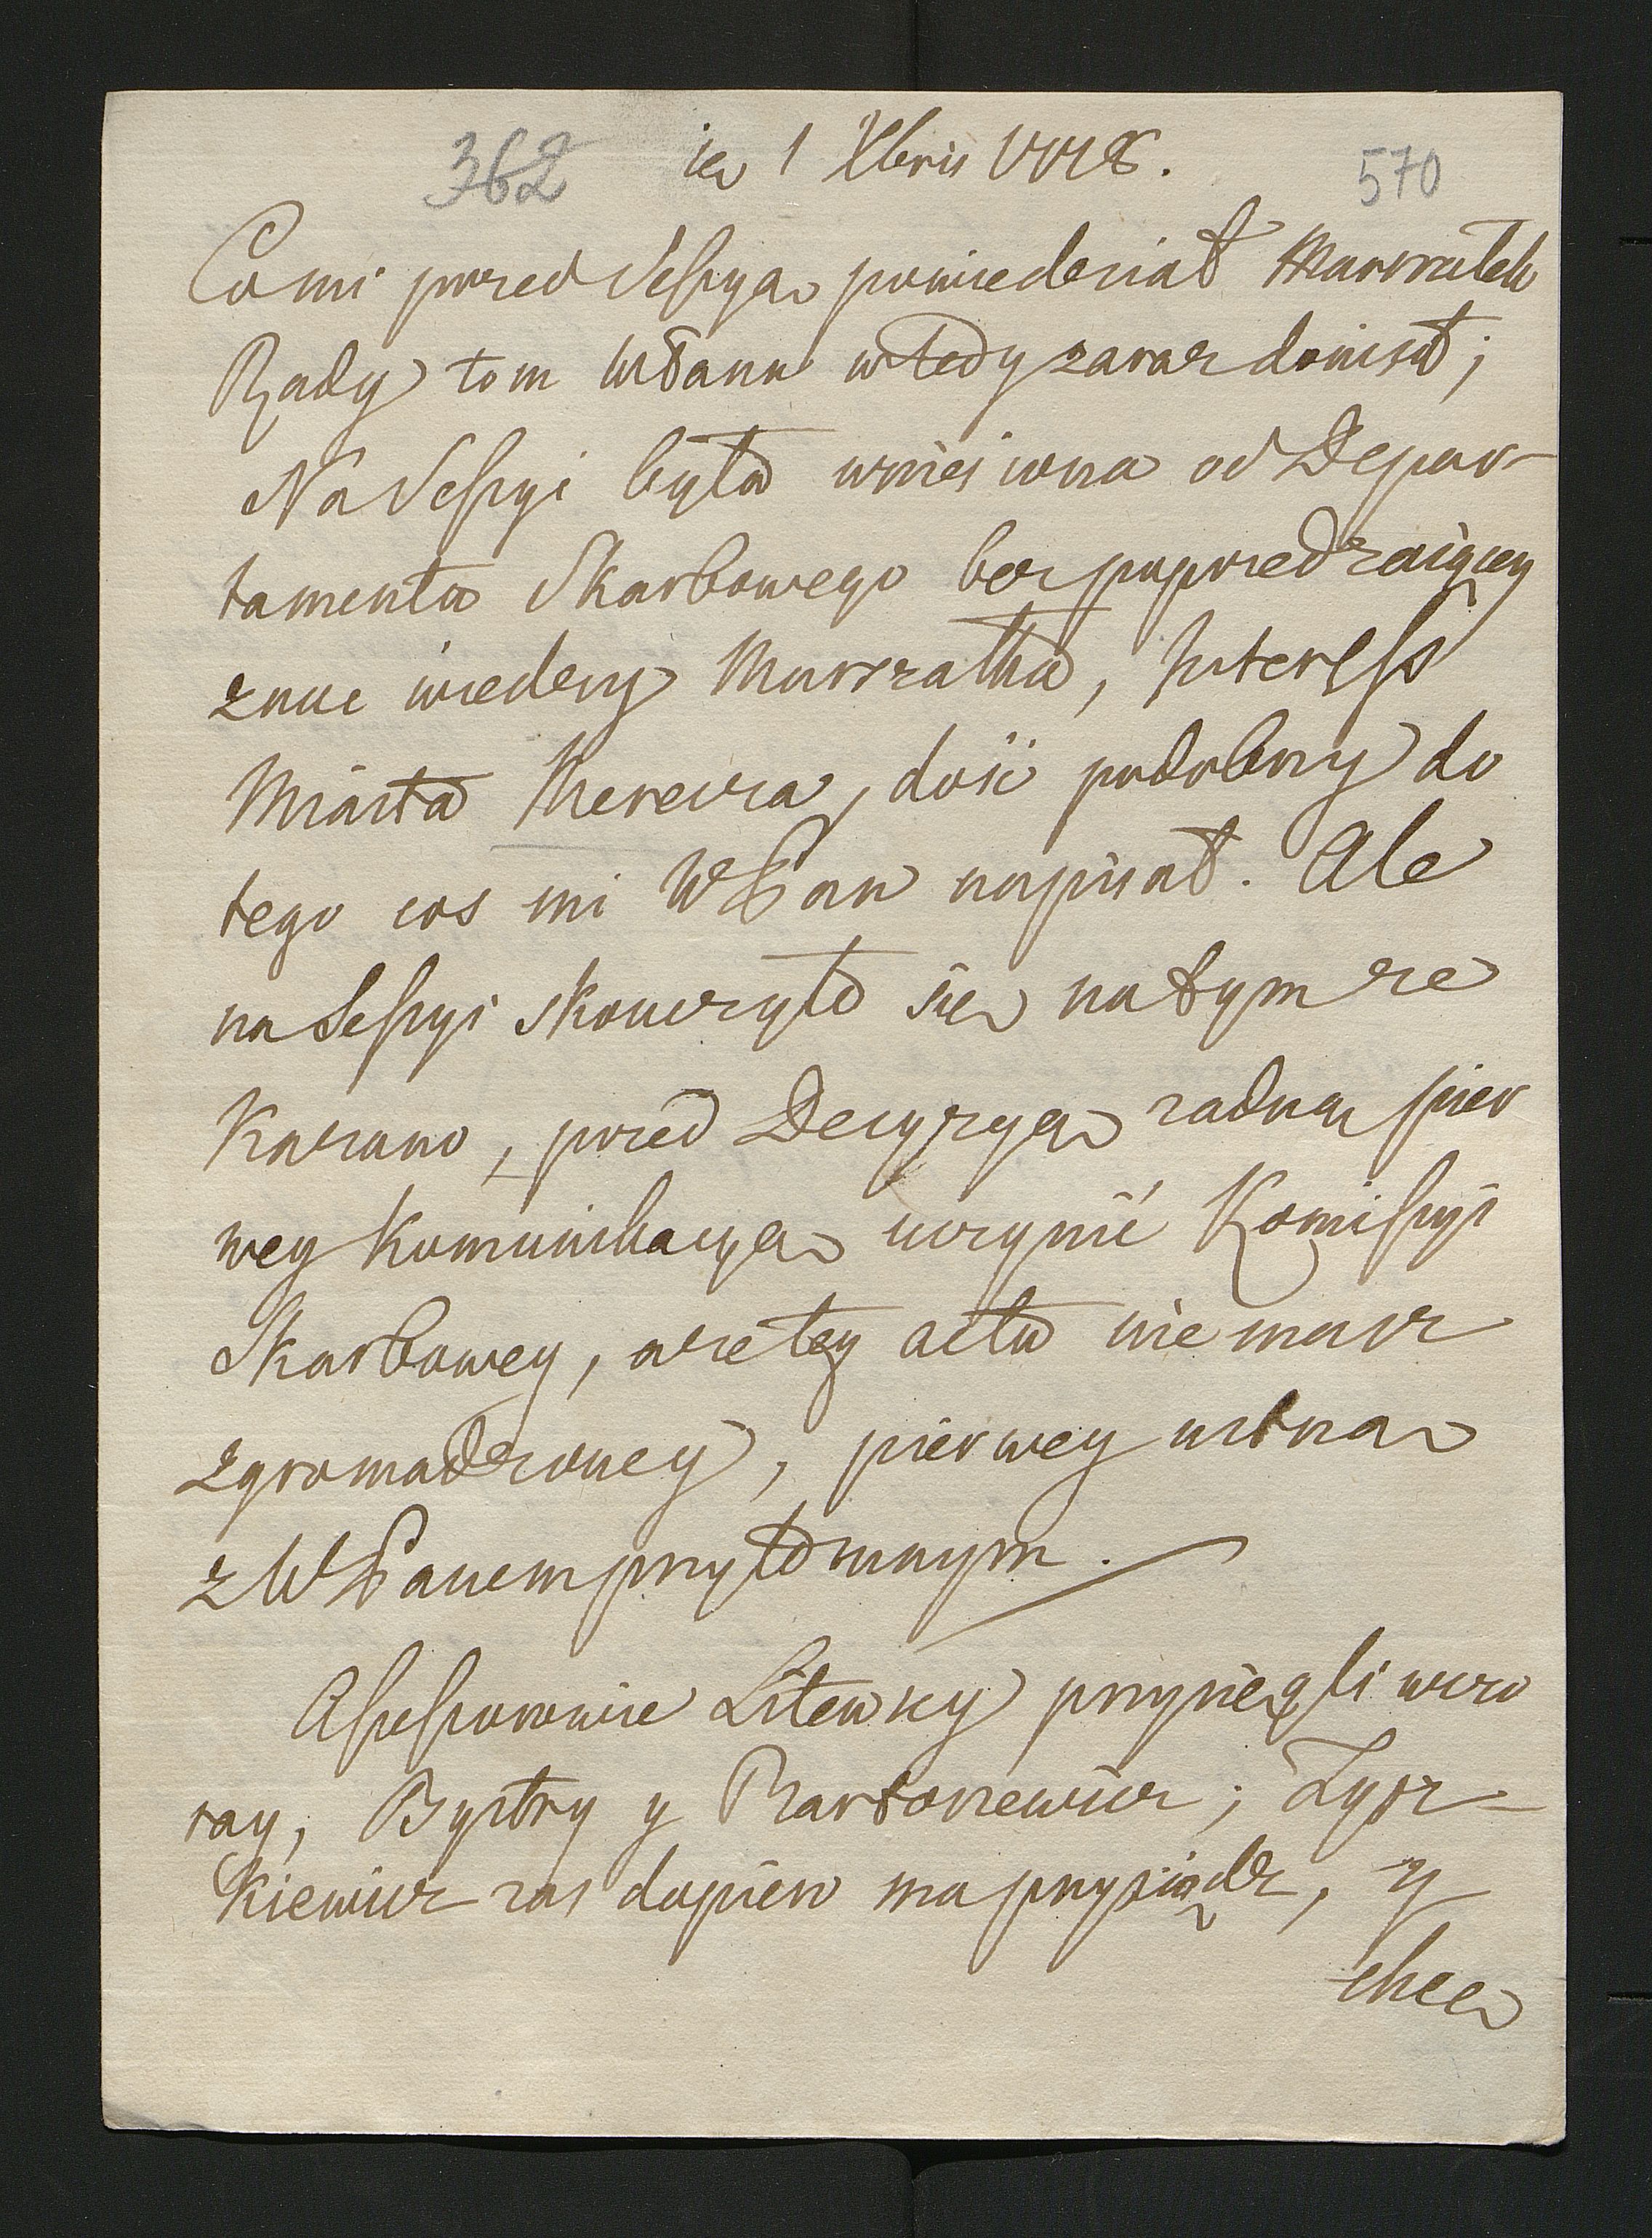 362 1 Xbris 570
Co mi przed Sessyą powiedział Marszałek
Rady tom WPanu wtedy zaraz doniosł;
Na Sessyi była wniesiona od Depar-
tamentu Skarbowego bez poprzedzaiącey
znac wiedzy Marszałka, Interess
Miasta Merecza, dość podobny do
tego cos mi WPan napisał. Ale
na Sessyi skonczyło się na tym ze
Kazano, przed Decyzyą zadną pier
wey Kommunikacyą uczynić Komissyi
Skarbowey, a ze tey actu nie masz
zgromadzoney, pierwey ustną
z WPanem przytomnym.
Assessorowie Litewscy przysięgli wczo
ray, Bystry y Bartoszewicz; Zysz-
kiewicz zas dopiero ma przysiądz, y
chce